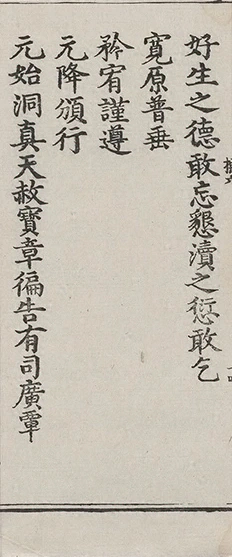 好生之德敢忘懇瀆之愆敢乞
寬原普垂
矜宥謹遵
元降頒行
元始洞真天赦寶章徧告有司廣覃